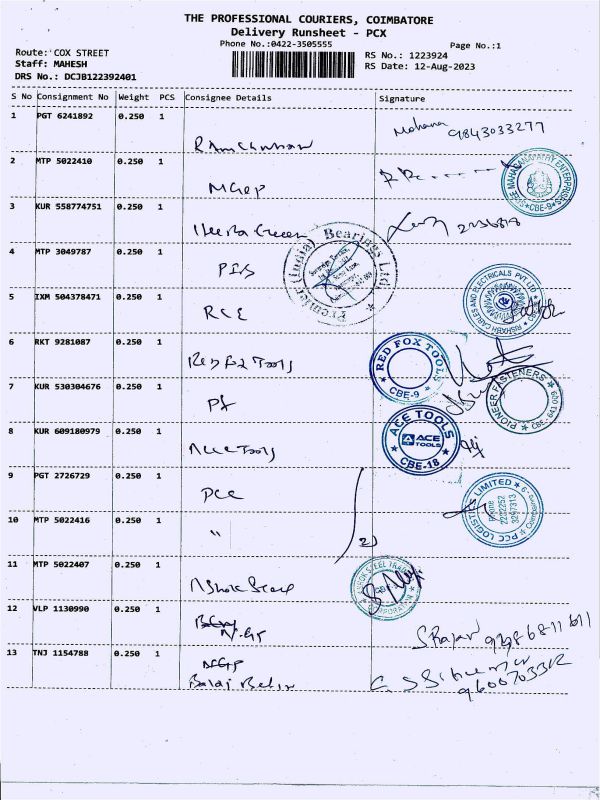 THE PROFESSIONAL COURIERS, COIMBATORE
Delivery Runsheet - PCX
Phone No.:0422-3505555
Page No.:1
Route: COX STREET
Staff: MAHESH
DRS No.: DCJB122392401
RS No.: 1223924
RS Date: 12-Aug-2023
S No Consignment No Weight PCS Consignee Details Signature
1 PGT 6241892 0.250 1
Mohana 9843033277
2 MTP 5022410 0.250 1
MGP
MAHABANAMATRY ENTERPRISES CBE-9
3 KUR 558774751 0.250 1
4 MTP 3049787 0.250 1
Premier (India) Bearings Ltd
5 IXM 504378471 0.250 1
RCE
RISHABH CABLES AND ELECTRICALS PVT LTD
6 RKT 9281087 0.250 1
Red Fox Tools
RED FOX TOOLS CBE-9
7 KUR 530304676 0.250 1
PF
PIONEER FASTENERS CBE-641 009
8 KUR 609180979 0.250 1
Ace Tools
ACE TOOLS
ACE TOOLS
CBE-18
9 PGT 2726729 0.250 1
PCC
PCC LOGISTICS LIMITED
Phone
2222252
3297313
10 MTP 5022416 0.250 1
"
2)
11 MTP 5022407 0.250 1
Ashok Steel
ASHOK STEEL TRADING CORPORATION
12 VLP 1130990 0.250 1
NGP
S Rajan
13 TNJ 1154788 0.250 1
NGP
Balaj